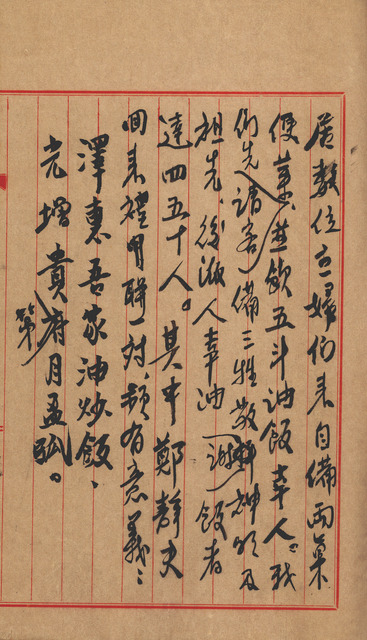 居數位主婦們來自備兩菓
便菓並飲五斗油飯幸人。我
們先請客備三牲敬拜神明及
祖先、後派人幸油謝飯者
達四五十人。其中鄭靜夫
回來禮甲聯一對、頗有意義：
澤惠吾家油炒飯、
光增貴府月孟弧。
第